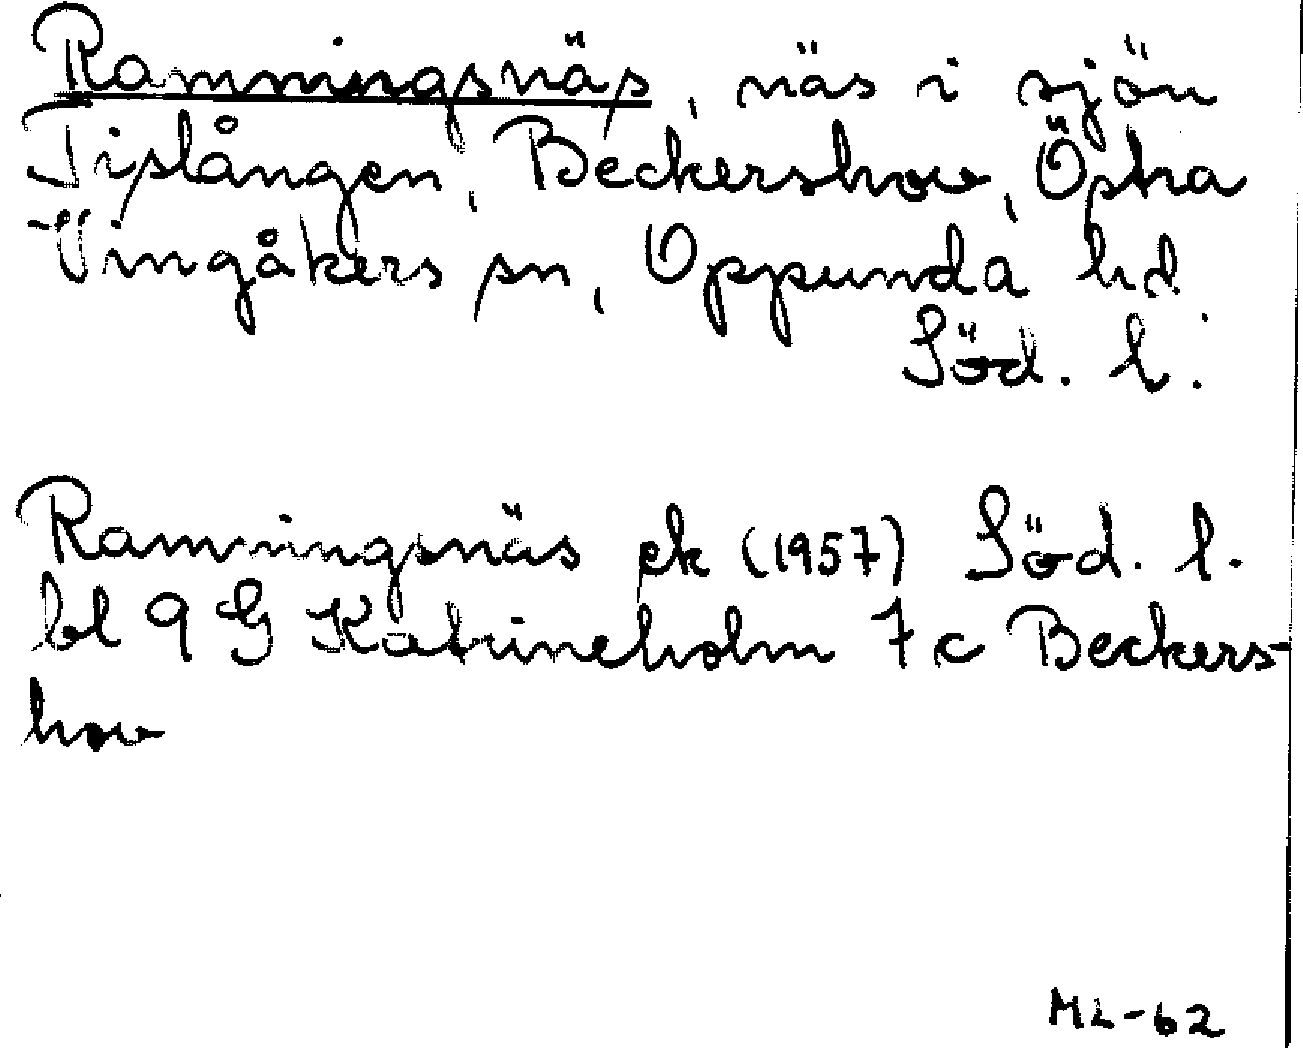 Ramningsnäs, näs i sjön
Tislången, Beckershov, Östra
Vingåkers sn, Oppunda hd
Söd. l.
Ramningsnäs ek (1957) Söd. l.
bl 9 G Katrineholm 7 c Beckers-
hov
ML-62